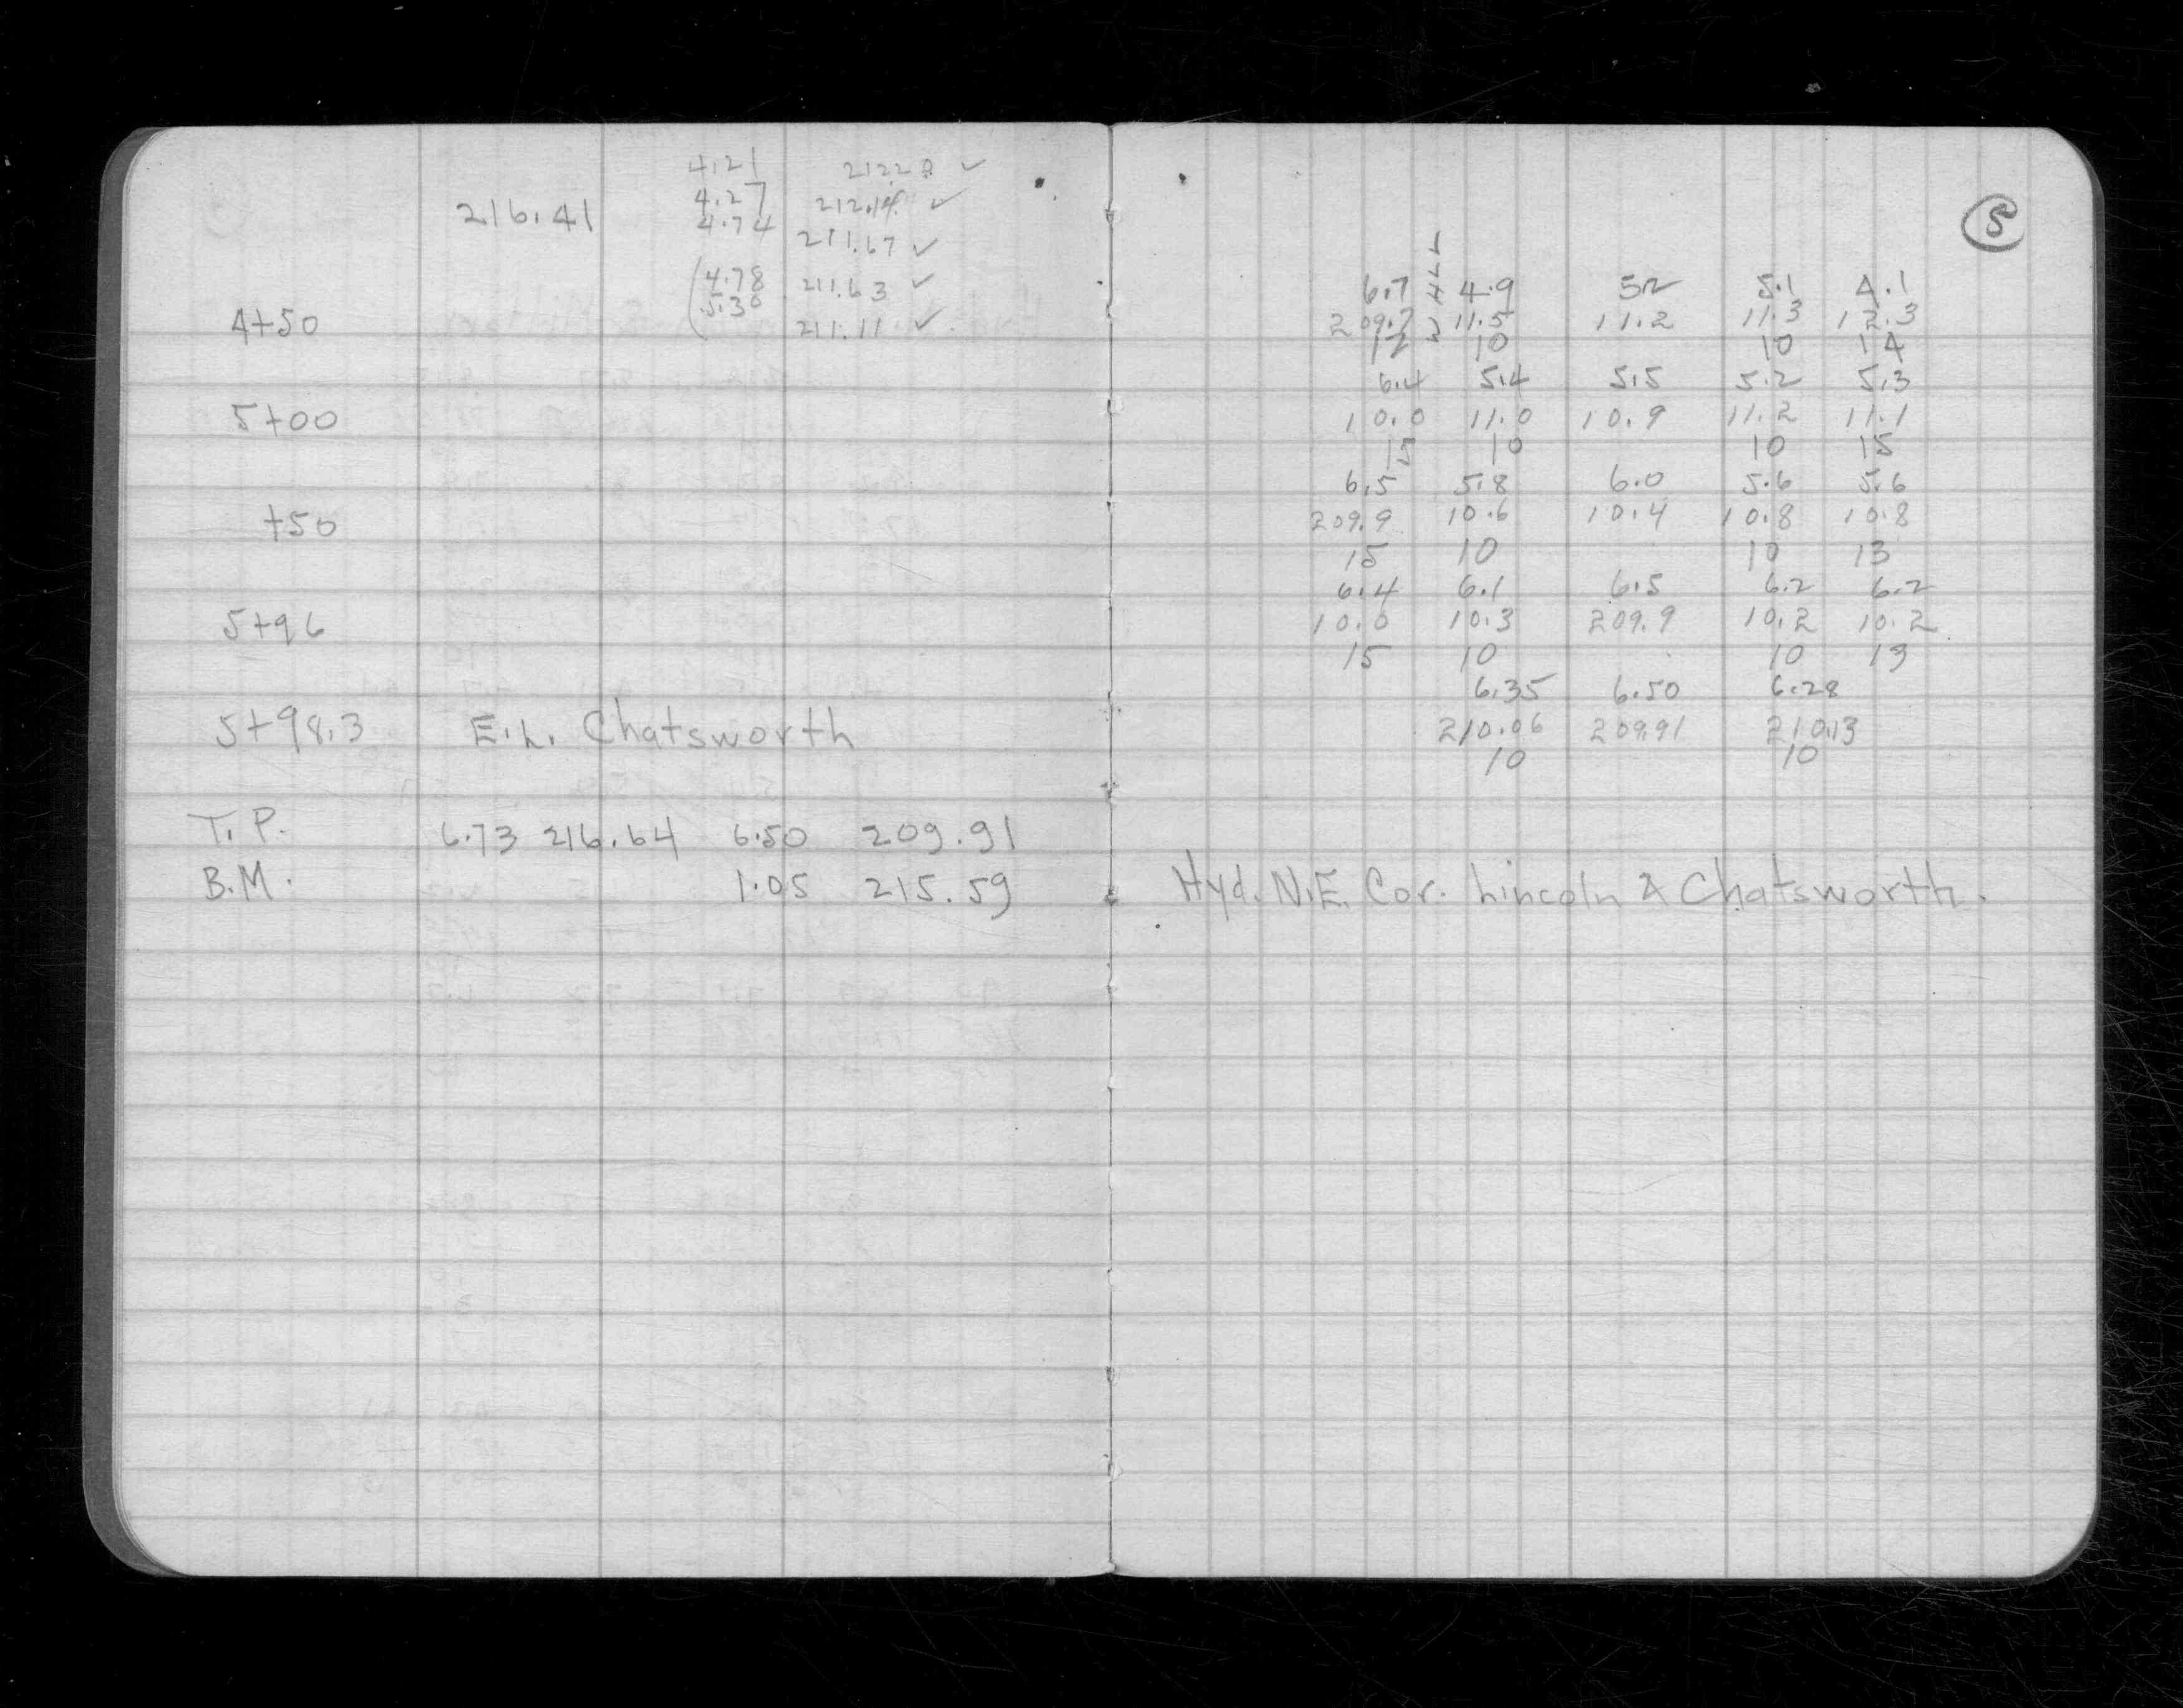 4.21 212.20 ✓
4.27 212.14 ✓
216.41 4.74 211.67 ✓
(4.78 211.63 ✓
5.30
4+50 211.11 ✓
5+00
+50
5+96
5+98.3 E.L. Chatsworth
T.P. 6.73 216.64 6.50 209.91
B.M. 1.05 215.59
5
WALL
6.7 4.9 5.2 5.1 4.1
209.7 11.5 11.2 11.3 12.3
12 10 10 14
6.4 5.4 5.5 5.2 5.3
10.0 11.0 10.9 11.2 11.1
15 10 10 15
6.5 5.8 6.0 5.6 5.6
209.9 10.6 10.4 10.8 10.8
15 10 10 13
6.4 6.1 6.5 6.2 6.2
10.0 10.3 209.9 10.2 10.2
15 10 10 13
6.35 6.50 6.28
210.06 209.91 210.13
10 10
Hyd. N.E. Cor. Lincoln & Chatsworth.